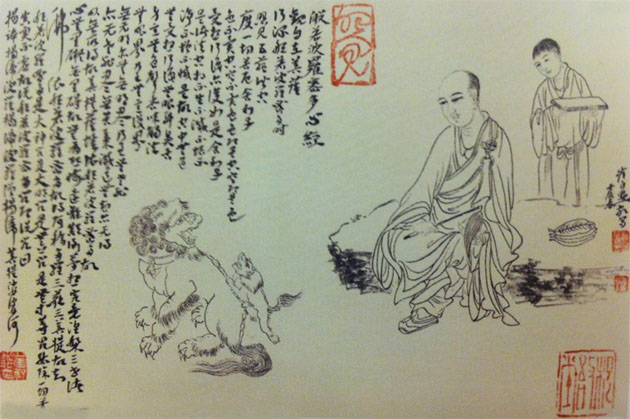 般若波羅蜜多心經
觀自在菩薩
行深般若波羅蜜多時
照見五蘊皆空
度一切苦厄舍利子
色不異空空不異色色即是空空即是色
受想行識亦復如是舍利子
是諸法空相不生不滅不垢不
淨不增不減是故空中無色
無受想行識無眼耳鼻舌
身意無色聲香味觸法
無眼界乃至無意識界
無無明亦無無明盡乃至無老死
亦無老死盡無苦集滅道無智亦無得
以無所得故菩提薩埵依般若波羅蜜多故
心無罣礙無罣礙故無有恐怖遠離顛倒夢想究竟涅槃三世諸
佛 依般若波羅蜜多故得阿耨多羅三藐三菩提故知
般若波羅蜜多是大神咒是大明咒是無上咒是無等等咒能除一切苦
真實不虛故說般若波羅蜜多咒即說咒曰
揭諦揭諦波羅揭諦波羅僧揭諦菩提薩婆訶